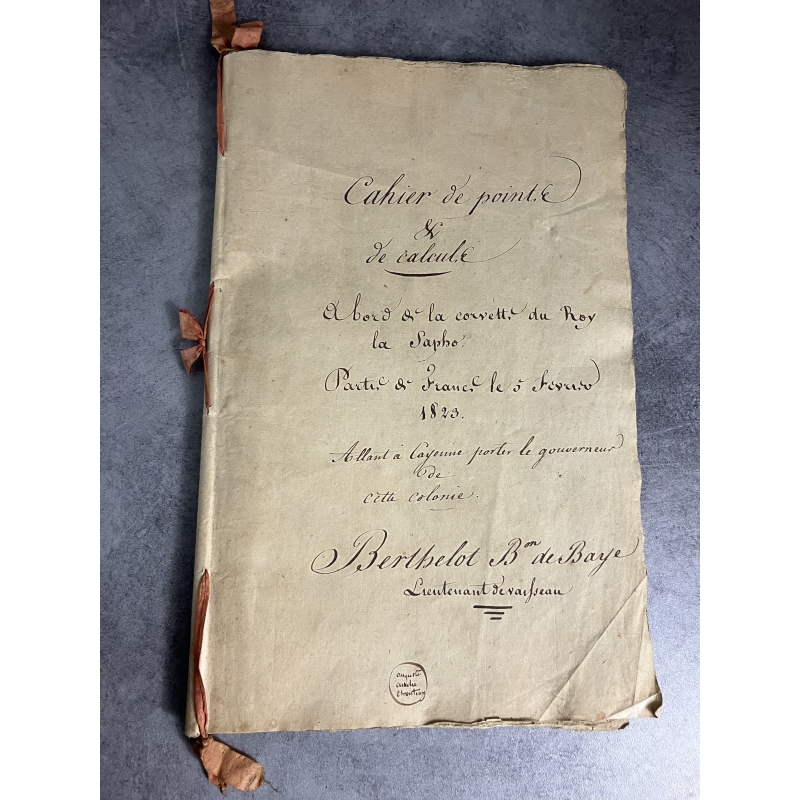 Cahier de pointe
&
de calcule
A bord de la corvette du Roy
la Sapho.
Partie de France le 5 Février
1823.
Allant à Cayenne porter le gouverneur
de
cette colonie.
Berthelot Bon de Baye
Lieutenant de vaisseau